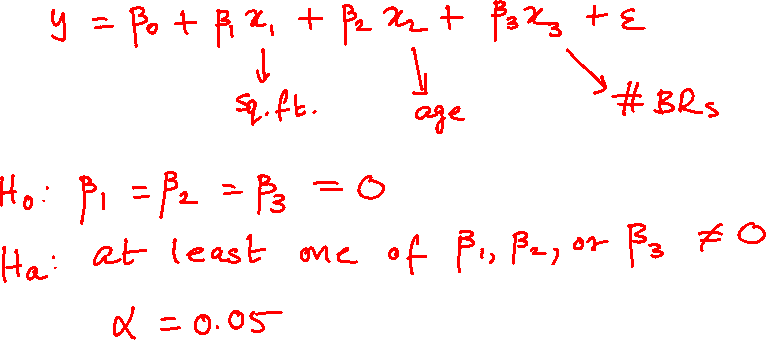 y = β₀ + β₁x₁ + β₂x₂ + β₃x₃ + ε
sq.ft. age # BRs
H₀: β₁ = β₂ = β₃ = 0
Ha: at least one of β₁, β₂, or β₃ ≠ 0
α = 0.05